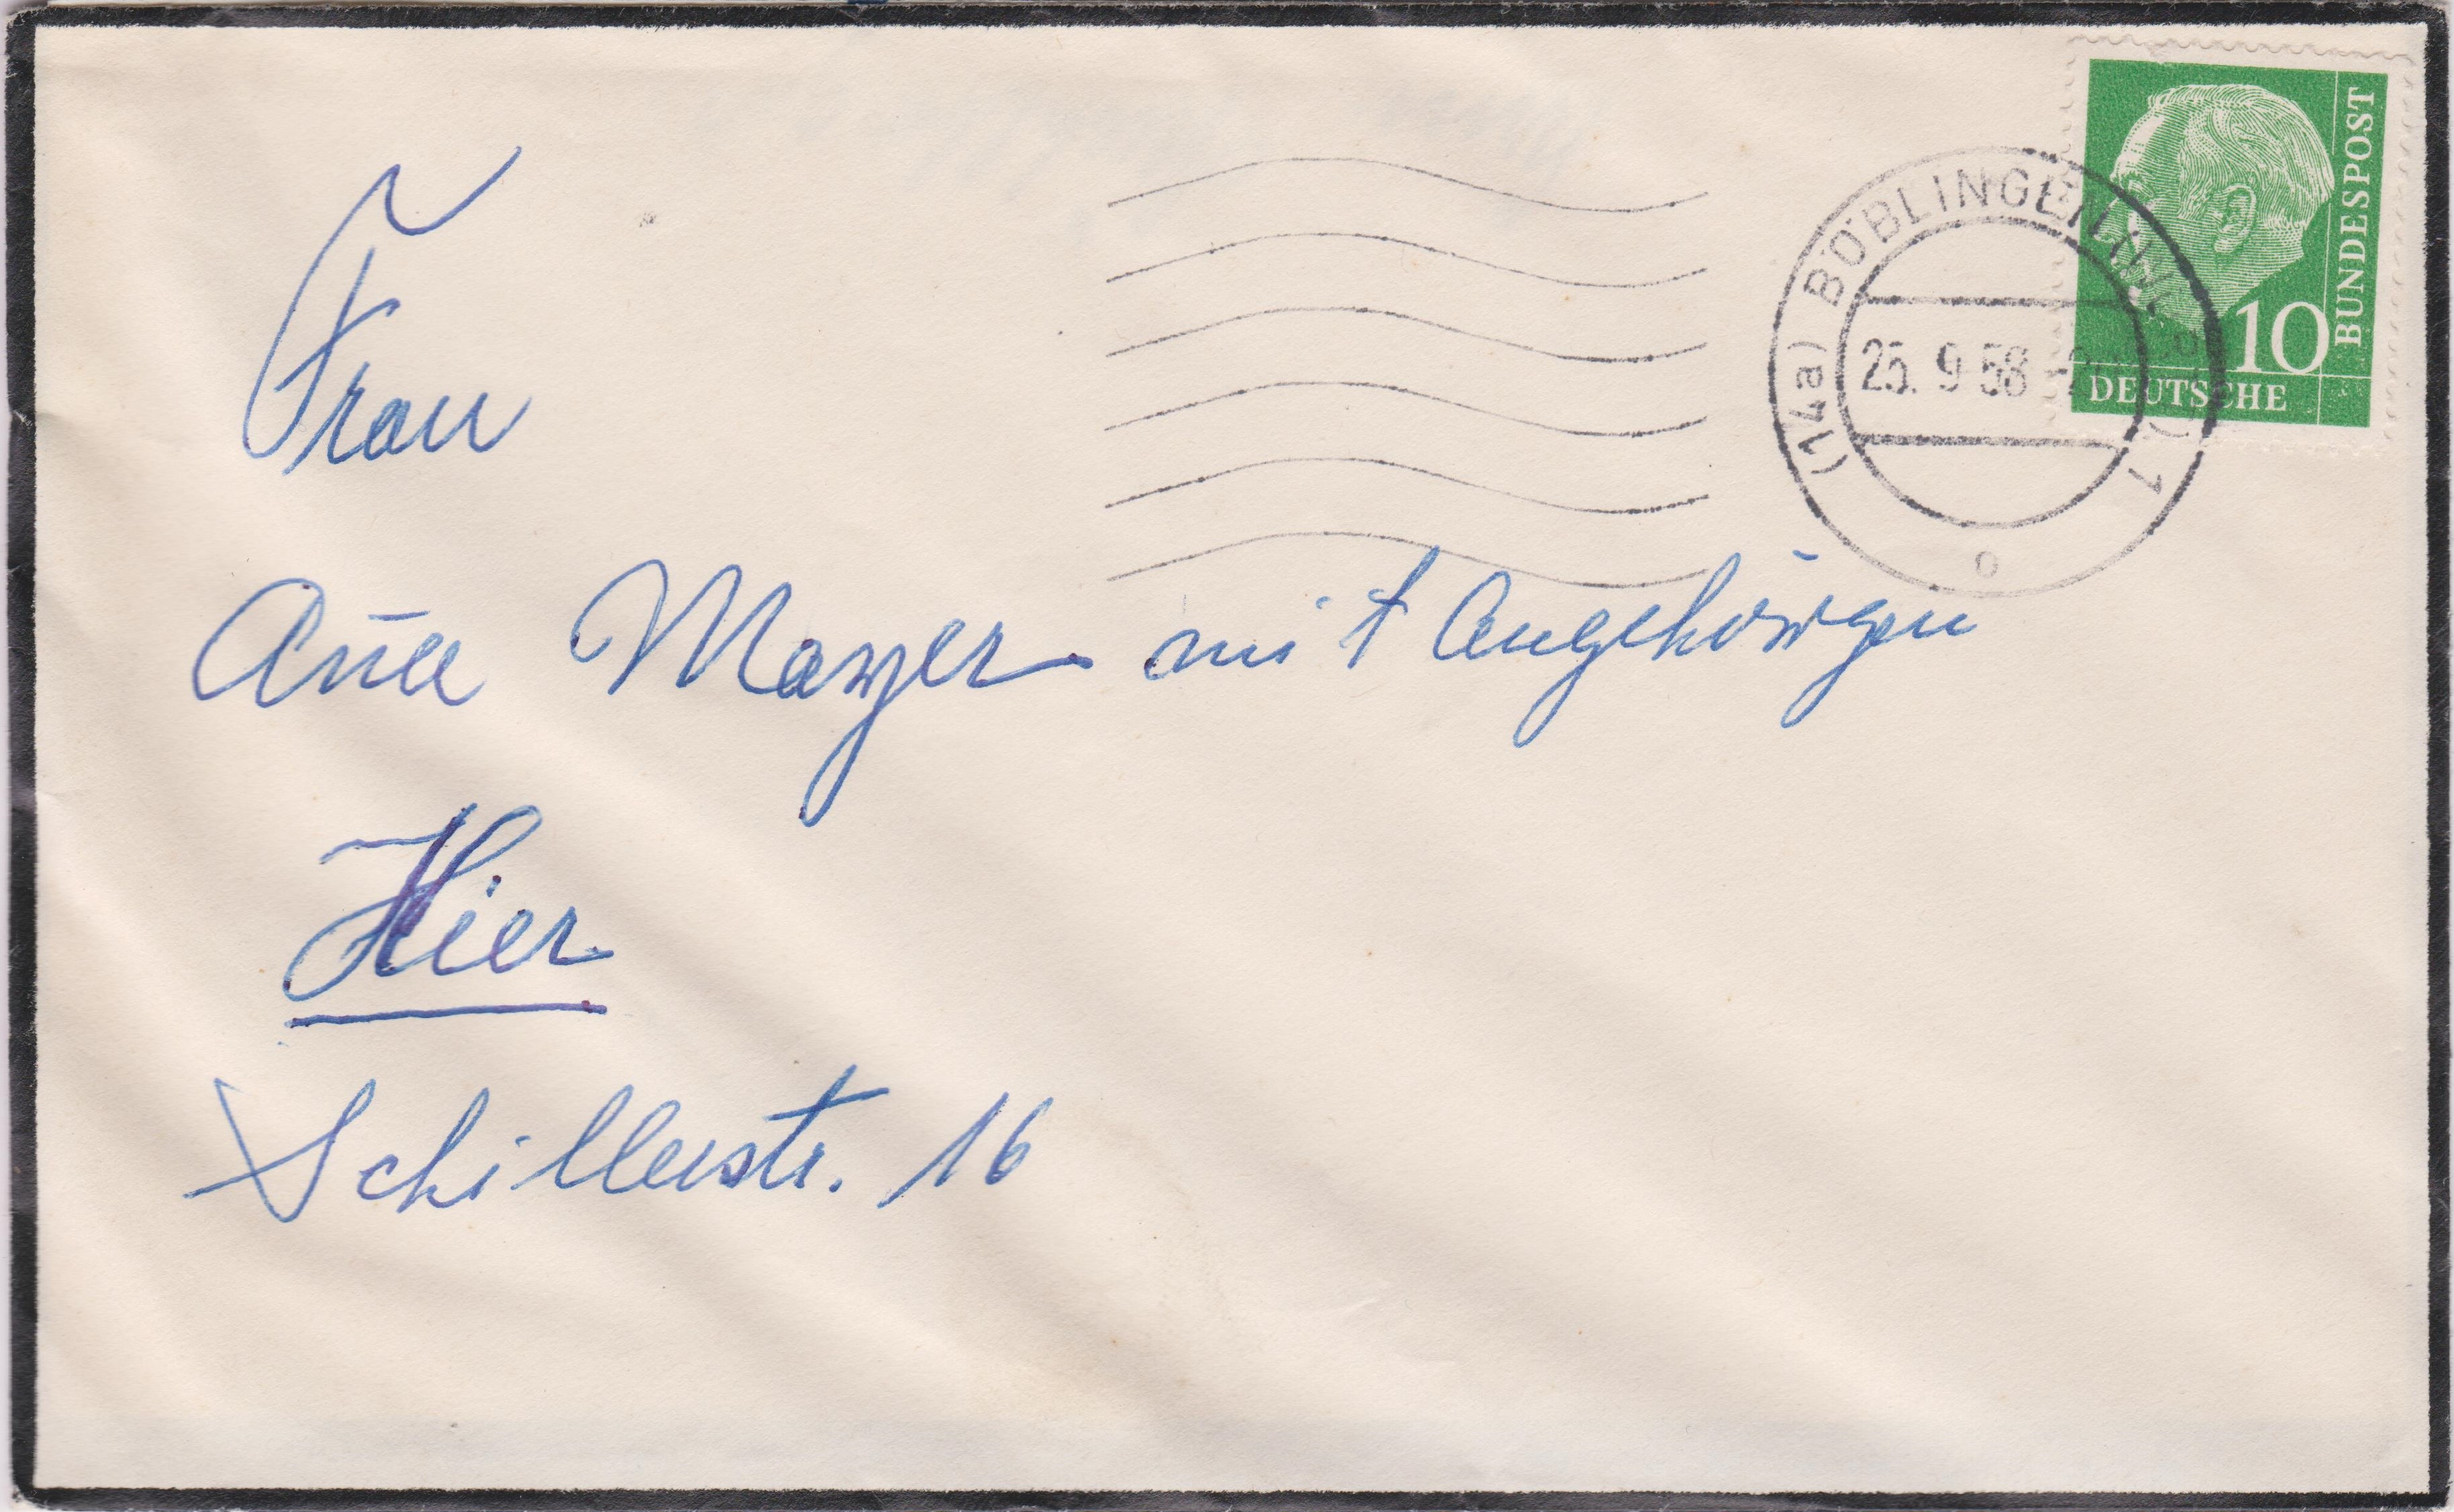 BUNDESPOST
10
DEUTSCHE
(14a) BÖBLINGEN
25. 9 58
1
o
Frau
Anna Mayer mit Angehörigen
Hier
Schillerstr. 16